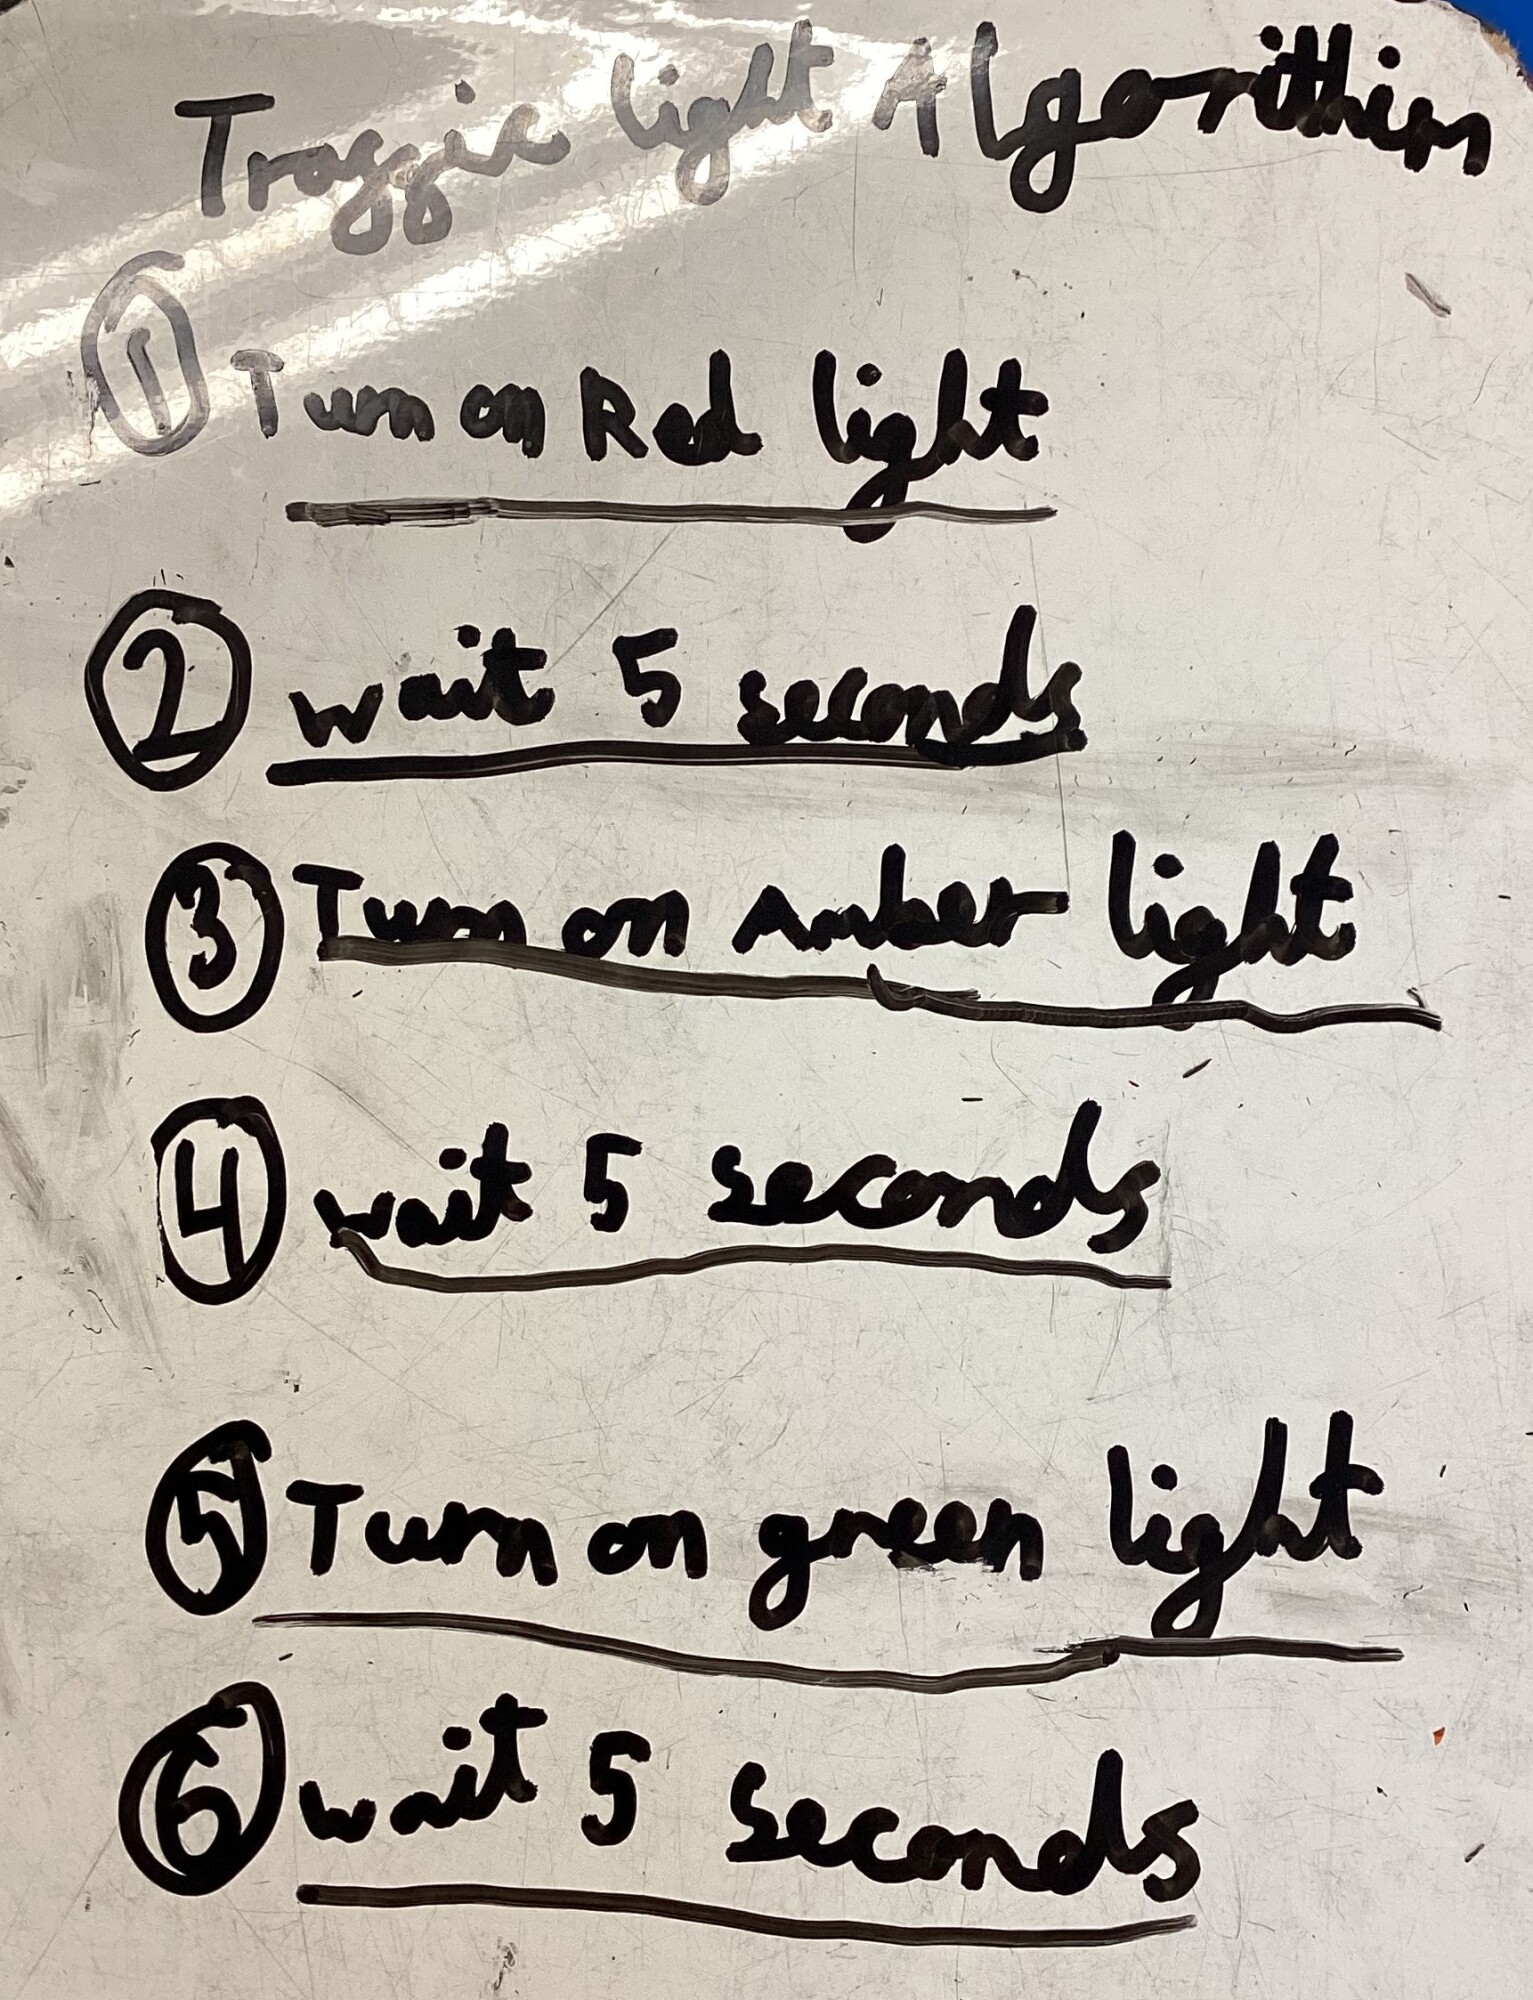 Traffic light Algorithim
1 Turn on Red light
2 wait 5 seconds
3 Turn on Amber light
4 wait 5 seconds
5 Turn on green light
6 wait 5 seconds